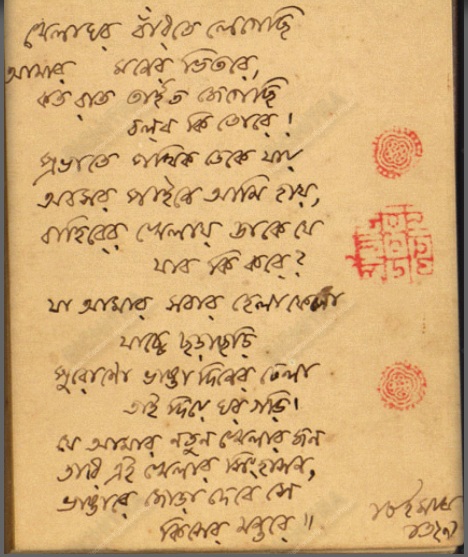 খেলাঘর বাঁধতে লেগেছি
আমার মনের ভিতরে,
কত রাত তাইত জেগেছি
বলব কি তোরে!
প্রভাতে পথিক ডেকে যায়
অবসর পাইনে আমি হায়,
বাহিরের খেলায় ডাকে যে
যাব কি করে?
যা আমার সবার হেলাফেলা
যাচ্চে ছড়াছড়ি
পুরোনো ভাঙা দিনের ঢেলা
তাই দিয়ে ঘর গড়ি।
যে আমার নতুন খেলার জন
তারি এই খেলার সিংহাসন,
ভাঙারে জোড়া দেবে সে
কিসের মন্তরে॥